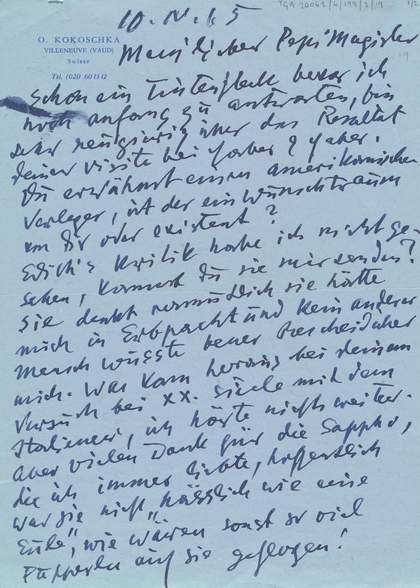 TGA 20062/4/199/3/19
1/2
19
10. IV. 65
O. KOKOSCHKA
VILLENEUVE (VAUD)
Suisse
Tél. (020) 60 15 12
Mein lieber Pepi Magister
Schon ein Tintenfleck bevor ich
noch anfang zu antworten, bin
sehr neugierig über das Resultat
deiner Visite bei Faber & Faber.
Du erwähnst einen amerikanischen
Verleger, ist der ein Wunschtraum
von Dir oder existent?
Edith's Kritik habe ich nicht ge-
sehen, kannst Du sie mir senden?
Sie denkt vermutlich sie hätte
mich in Erbpacht und kein anderer
Mensch wüsste besser Bescheid über
mich. Was kam heraus bei deinem
Versuch bei XX. Siècle mit dem
Italiener, ich hörte nichts weiter.
Aber vielen Dank für die Sappho,
die ich immer liebte, hoffentlich
war sie nicht „hässlich wie eine
Eule", wie wären sonst so viel
auf sie geflogen!